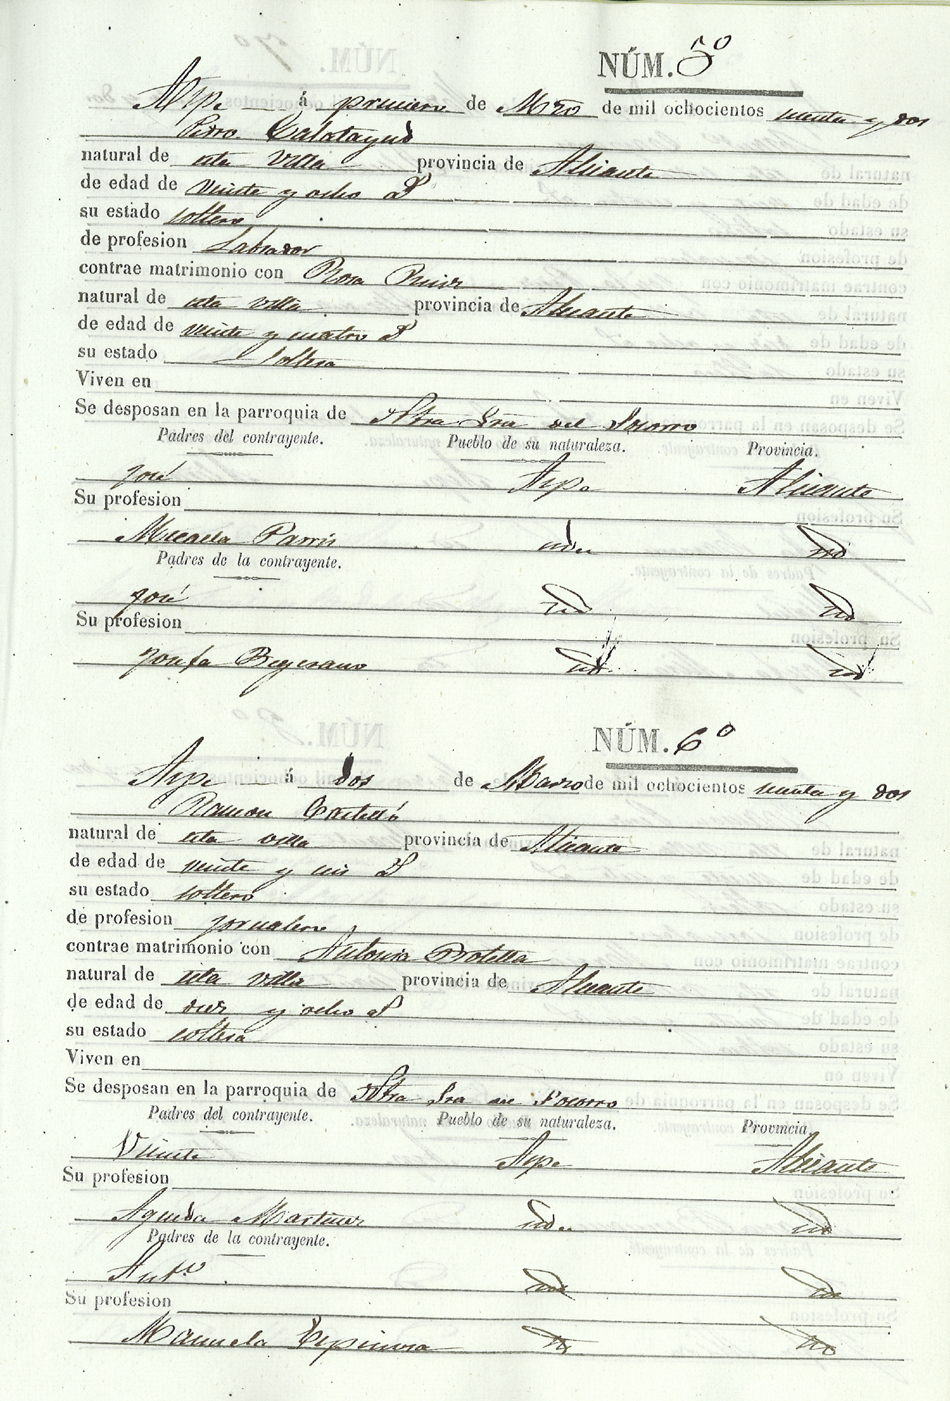 NÚM. 5º
Aspe á primero de Mzo de mil ochocientos sesenta y dos
Pedro Calatayud
natural de esta villa provincia de Alicante
de edad de veinte y ocho aˢ
su estado soltero
de profesion Labrador
contrae matrimonio con Rosa
natural de esta villa provincia de Alicante
de edad de veinte y cuatro aˢ
su estado Soltera
Viven en
Se desposan en la parroquia de Ntra Sra del Socorro
Padres del contrayente. Pueblo de su naturaleza. Provincia.
José Aspe Alicante
Su profesion
Micaela id
Padres de la contrayente.
José id id
Su profesion
Josefa id id
NÚM. 6º
Aspe á dos de Marzo de mil ochocientos sesenta y dos
Ramon Castelló
natural de esta villa provincia de Alicante
de edad de veinte y seis aˢ
su estado soltero
de profesion jornalero
contrae matrimonio con Antonia Botella
natural de esta villa provincia de Alicante
de edad de diez y ocho aˢ
su estado soltera
Viven en
Se desposan en la parroquia de Ntra Sra del Socorro
Padres del contrayente. Pueblo de su naturaleza. Provincia.
Vicente Aspe Alicante
Su profesion
Agueda Martinez id
Padres de la contrayente.
Antº id id
Su profesion
Manuela id id